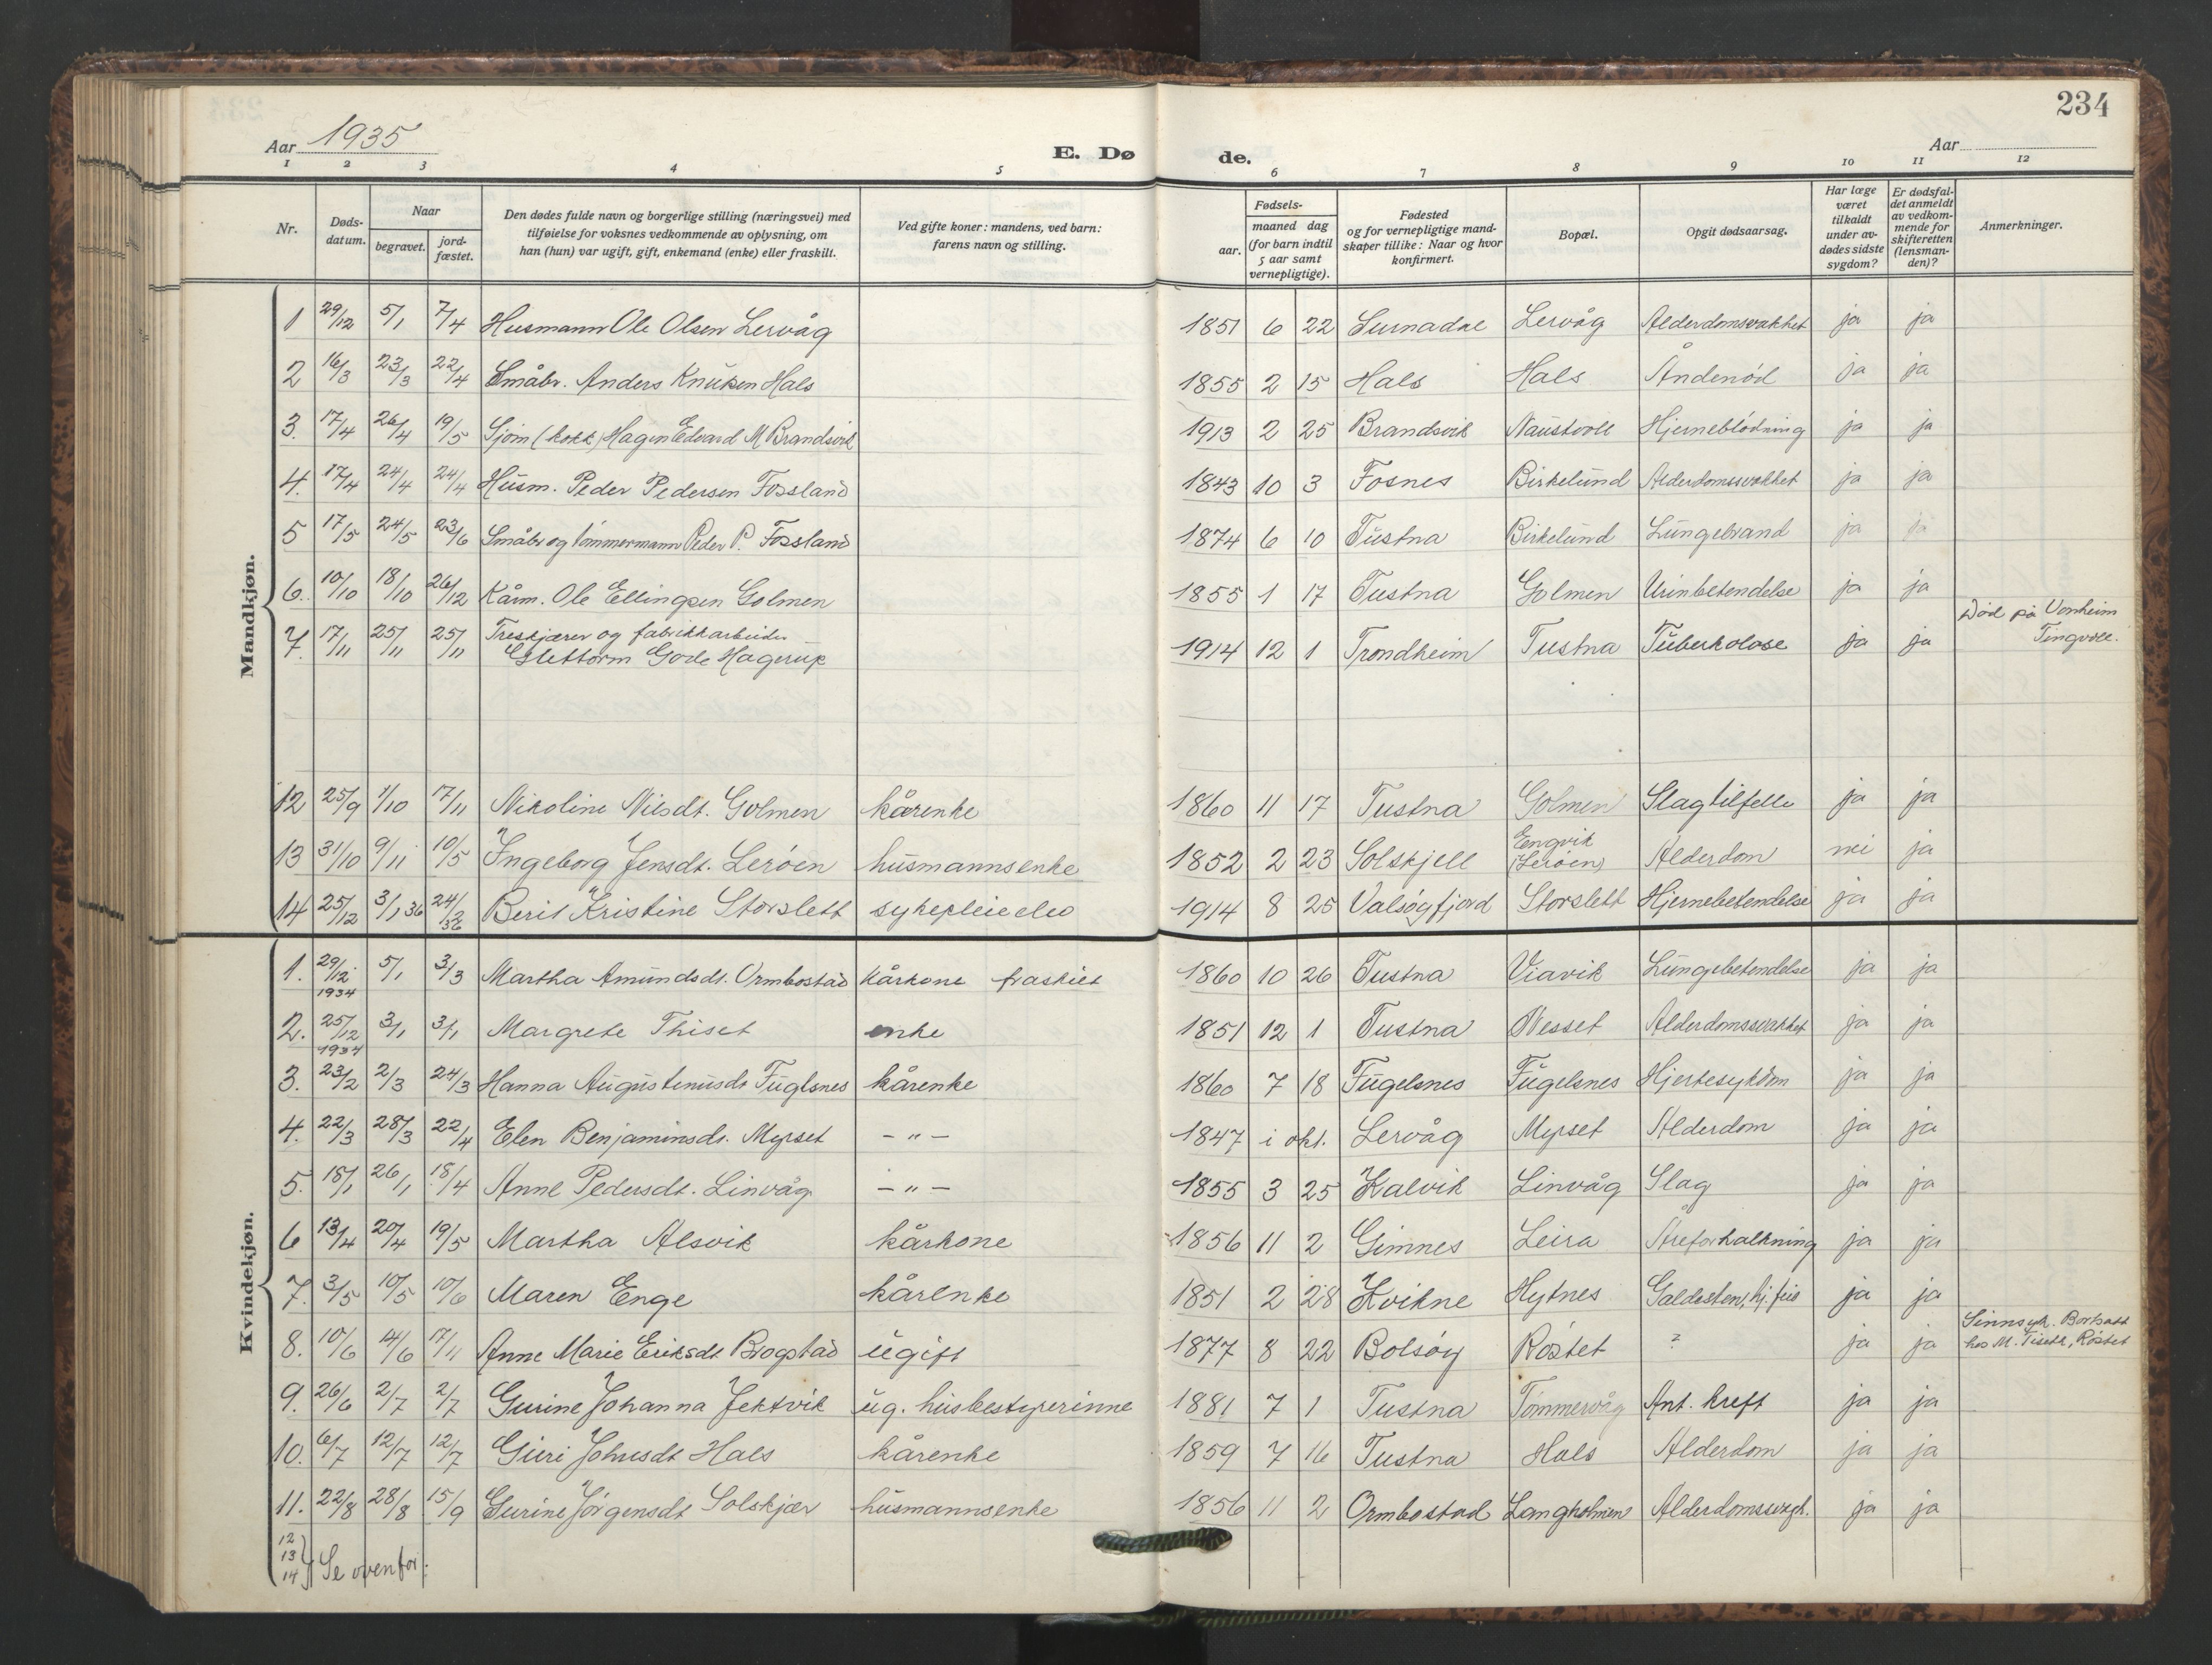 234
Aar 1935
E. Dø
de.
Aar
1 2 3 4 5 6 7 8 9 10 11 12
Nr.
Døds-datum.
Naar
begravet.
jord-fæstet.
Den dødes fulde navn og borgerlige stilling (næringsvei) med
tilføielse for voksnes vedkommende av oplysning, om
han (hun) var ugift, gift, enkemand (enke) eller fraskilt.
Ved gifte koner: mandens, ved barn:
farens navn og stilling.
Fødsels-
aar.
maaned dag
(for barn indtil
5 aar samt
vernepligtige).
Fødested
og for vernepligtige mand-
skaper tillike: Naar og hvor
konfirmert.
Bopæl.
Opgit dødsaarsag.
Har læge
været
tilkaldt
under av-
dødes sidste
sygdom?
Er dødsfal-
det anmeldt
av vedkom-
mende for
skifteretten
(lensman-
den)?
Anmerkninger.
Mandkjøn.
1 29/12 5/1 7/4 Husmann Ole Olsen Lervåg 1851 6 22 Surnadal Lervåg Alderdomsvakhet ja ja
2 16/3 23/3 22/4 Småbr. Anders Knutsen Hals 1855 2 15 Hals Hals Åndenød ja ja
3. 17/4 26/4 19/5 Sjøm (kokk) Hagen Edvard M Brandsvik 1913 2 25 Brandsvik Naustvoll Hjerneblødning ja ja
4. 17/4 24/4 24/4 Husm. Peder Pedersen Fossland 1843 10 3 Fosnes Birkelund Alderdomssvakhet ja ja
5 17/5 24/5 23/6 Småbr og tømmermann Peder P. Fossland 1874 6 10 Tustna Birkelund Lungebrand ja ja
6. 10/10 18/10 26/12 Kårm. Ole Ellingsen Golmen 1855 1 17 Tustna Golmen Urinbetendelse ja ja
7. 17/11 25/11 25/11 Treskjærer og fabrikkarbeider
Gode Hagerup 1914 12 1 Trondheim Tustna Tuberkolose ja ja Død på Vonheim
Tingvoll.
12 25/9 1/10 17/11 Nikoline Nilsdt. Golmen kårenke 1860 11 17 Tustna Golmen Slagtilfelle ja ja
13 31/10 9/11 10/5 Ingeborg Jensdt. Lerøen husmannsenke 1852 2 23 Solskjell Engvik (Lerøen) Alderdom nei ja
14 25/12 3/1 36 24/2 36 Berit Kristine Storslett sykepleieelev 1914 8 25 Valsøyfjord Storslett Hjernebetendelse ja ja
Kvindekjøn.
1. 29/12 1934 5/1 3/3 Martha Amundsdt. Ormbostad kårkone fraskilt 1860 10 26 Tustna Viavik Lungebetendelse ja ja
2. 25/12 1934 3/1 3/1 Margrete Thiset enke 1851 12 1 Tustna Nesset Alderdomssvakhet ja ja
3. 23/2 2/3 24/3 Hanna Augustinusdt Fuglsnes kårenke 1860 7 18 Fugelsnes Fugelsnes Hjertesykdom ja ja
4. 22/3 28/3 22/4 Elen Benjaminsdt. Myrset – " – 1847 i okt. Lervåg Myrset Alderdom ja ja
5. 18/1 26/1 18/4 Anne Pedersdt. Linvåg – " – 1855 3 25 Kalvik Linvåg Slag ja ja
6 13/4 20/4 19/5 Martha Alsvik kårkone 1856 11 2 Gimnes Leira Åreforkalkning ja ja
7. 3/5 10/5 10/6 Maren Enge kårenke 1851 2 28 Kvikne Hytnes Galdesten, hj. feil ja ja
8. 10/6 14/6 17/11 Anne Marie Eriksdt Brogstad ugift 1877 8 22 Bolsøy Røstet ? ja ja Sinnsyk. Bortsatt
hos M. Tiseth, Røstet
9. 26/6 2/7 2/7 Gurine Johanna Jektvik ug. husbestyrerinne 1881 7 1 Tustna Tømmervåg Ant. kreft ja ja
10. 6/7 12/7 12/7 Guri Johnsdt Hals kårenke 1859 7 16 Tustna Hals Alderdom ja ja
11. 22/8 28/8 15/9 Gurine Jørgensdt Solskjær husmannsenke 1856 11 2 Ormbostad Langholmen Alderdomssvagh. ja ja
12
13
14 } Se ovenfor: